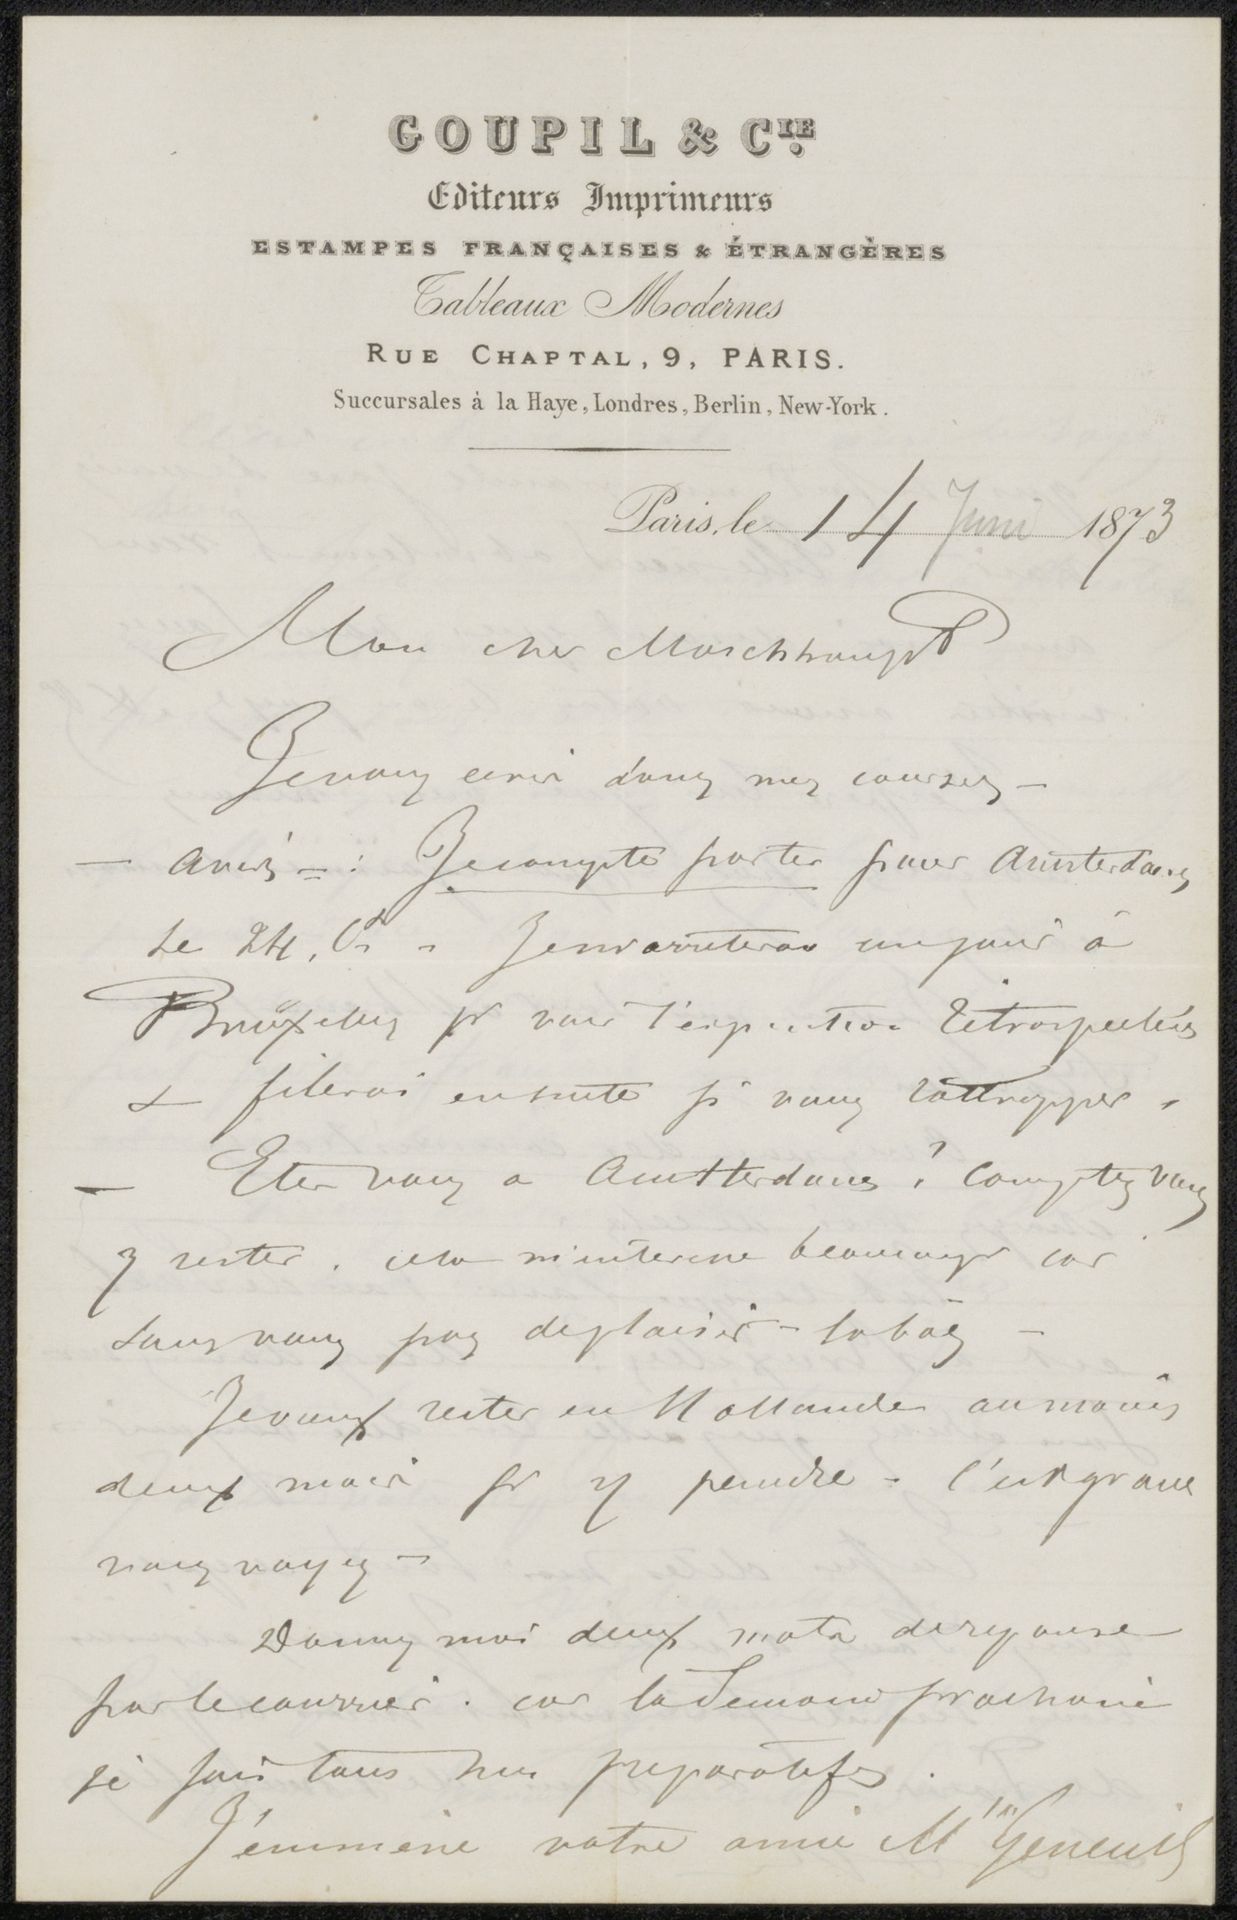 GOUPIL & CIE.
Editeurs Imprimeurs
ESTAMPES FRANÇAISES & ÉTRANGÈRES
Tableaux Modernes
RUE CHAPTAL, 9, PARIS.
Succursales à la Haye, Londres, Berlin, New-York.
Paris, le 14 Juni 1873
Mon cher
Je vous ecris dans mes courses —
— avis = : Je compte partir pour Amsterdam
le 24, Ct - Je m'arreterai un jour à
Bruxelles pr voir l'exposition Rétrospective
& filerai ensuite pr vous rattrapper,
— Etes vous a Amsterdam ? Comptez vous
y rester. cela m'interesse beaucoup car
sans vous pas de plaisir - la bas —
Je veux rester en Hollande au moins
deux mois pr y peindre - c'est grave
vous voyez —
Donnez moi deux mots de reponse
par le courrier. car la Semaine prochaine
je fais tous mes preparatifs.
J'emmene votre amie Mlle